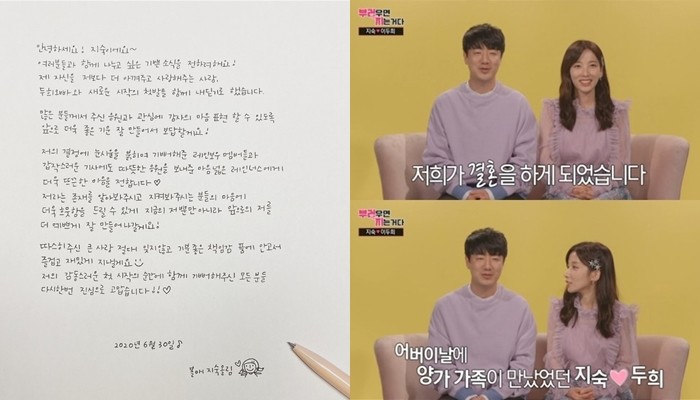 안녕하세요! 지숙이에요~
여러분들과 함께 나누고 싶은 기쁜 소식을 전하려해요!
제 자신을 저보다 더 아껴주고 사랑해주는 사람,
두희오빠와 새로운 시작의 첫발을 함께 내딛기로 했습니다.
많은 분들께서 주신 응원과 관심에 감사의 마음 표현 할 수 있도록
앞으로 더욱 좋은 기운 잘 만들어서 보답할게요!
저의 결정에 눈시울을 붉히며 기뻐해준 레인보우 멤버들과
갑작스러운 기사에도 따뜻한 응원을 보내준 마음 넓은 레인너스에게
더욱 뜨끈한 마음을 전합니다♡
저라는 존재를 알아봐주시고 지켜봐주시는 분들의 마음에
더욱 보듬함을 드릴 수 있게 지금의 저뿐만 아니라 앞으로의 저를
더 예쁘게 잘 만들어나갈게요!
따스히주신 큰 사랑 절대 잊지않고 기분좋은 책임감 품에 안고서
즐겁고 재밌게 지낼게요
저의 감동스러운 첫 시작의 순간에 함께 기뻐해주신 모든 분들
다시한번 진심으로 고맙습니다!!♡
2020년 6월 30일♪
지숙올림
부러우면
지는거다
지숙♥이두희
저희가 결혼을 하게 되었습니다
부러우면
지는거다
지숙♥이두희
어버이날에
양가 가족이 만났었던 지숙♥두희